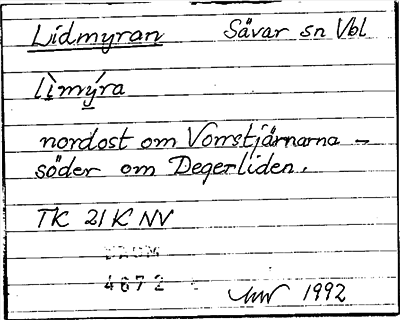 Lidmyran Sävar sn Vbl
lìmýra
nordost om Vorrstjärnarna –
söder om Degerliden.
TK 21 K NV
4672
1992